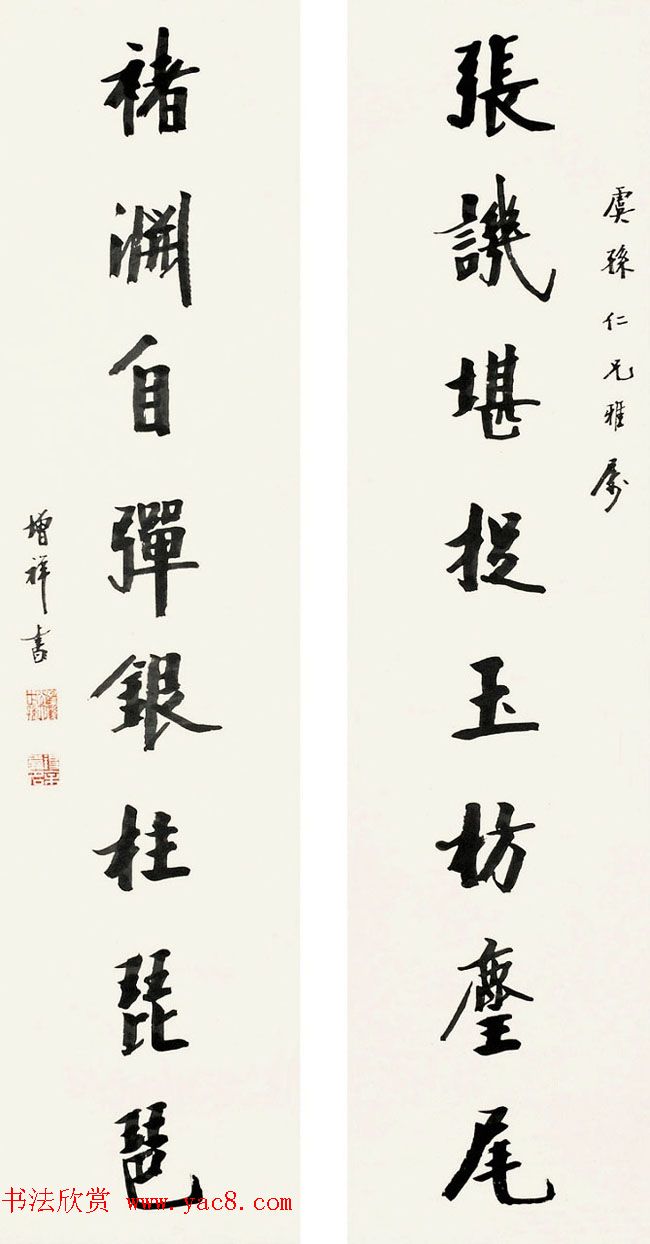 虞孫仁兄雅屬
張譏堪捉玉枋麈尾
褚淵自彈銀柱琵琶
增祥書
书法欣赏 www.yac8.com